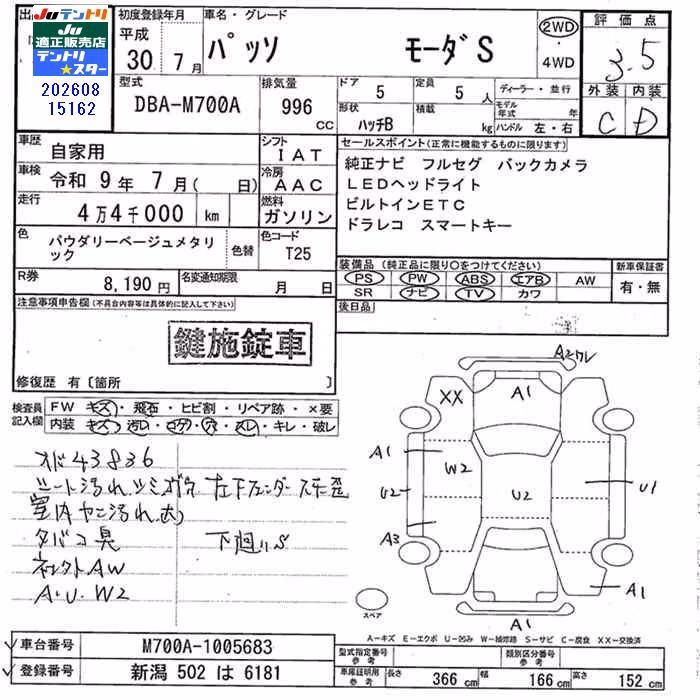 Juテントリ
Ju
適正販売店
テントリ
★スター
202608
15162
初度登録年月
平成
30年 7月
車名・グレード
パッソ モーダS
2WD
4WD
評価点
3.5
外装 内装
C D
型式
DBA-M700A
排気量
996 CC
ドア
5
定員
5人
形状
ハッチB
積載
kg
ディーラー・並行
モデル年式 年
ハンドル 左・右
車歴
自家用
シフト
IAT
車検
令和 9年 7月( 日)
冷房
AAC
走行
4万4千000 km
燃料
ガソリン
色
パウダリーベージュメタリック
色替
色コード
T25
R券
8,190円
名変通知期限
月 日
セールスポイント(正常に機能するものに限ります)
純正ナビ フルセグ バックカメラ
LEDヘッドライト
ビルトインETC
ドラレコ スマートキー
装備品(純正品に限り○をつけてください)
PS PW ABS エアB AW
SR ナビ TV カワ
新車保証書
有・無
後日品
注意事項申告欄(不具合内容等は具体的に記入して下さい)
鍵施錠車
修復歴 有〔箇所 〕
検査員記入欄
FW キズ・飛石・ヒビ割・リペア跡・×要
内装 キズ・汚レ・コゲ・穴・スレ・キレ・破レ
オド43836
シート汚れ シミ コゲ穴 左Fフェンダーステー歪
室内ヤニ汚れ 大
タバコ臭 下廻りS
社外AW
A・U・W2
A2ワレ
A1
XX
A1
W2
U2
U2
U1
A3
A1
A1
スペア
A―キズ E―エクボ U―凹み W―補修跡 S―サビ C―腐食 XX―交換済
車台番号
M700A-1005683
登録番号
新潟 502 は 6181
型式指定番号
参考
類別区分番号
参考
車庫証明用
参考
長さ 366 cm 幅 166 cm 高さ 152 cm